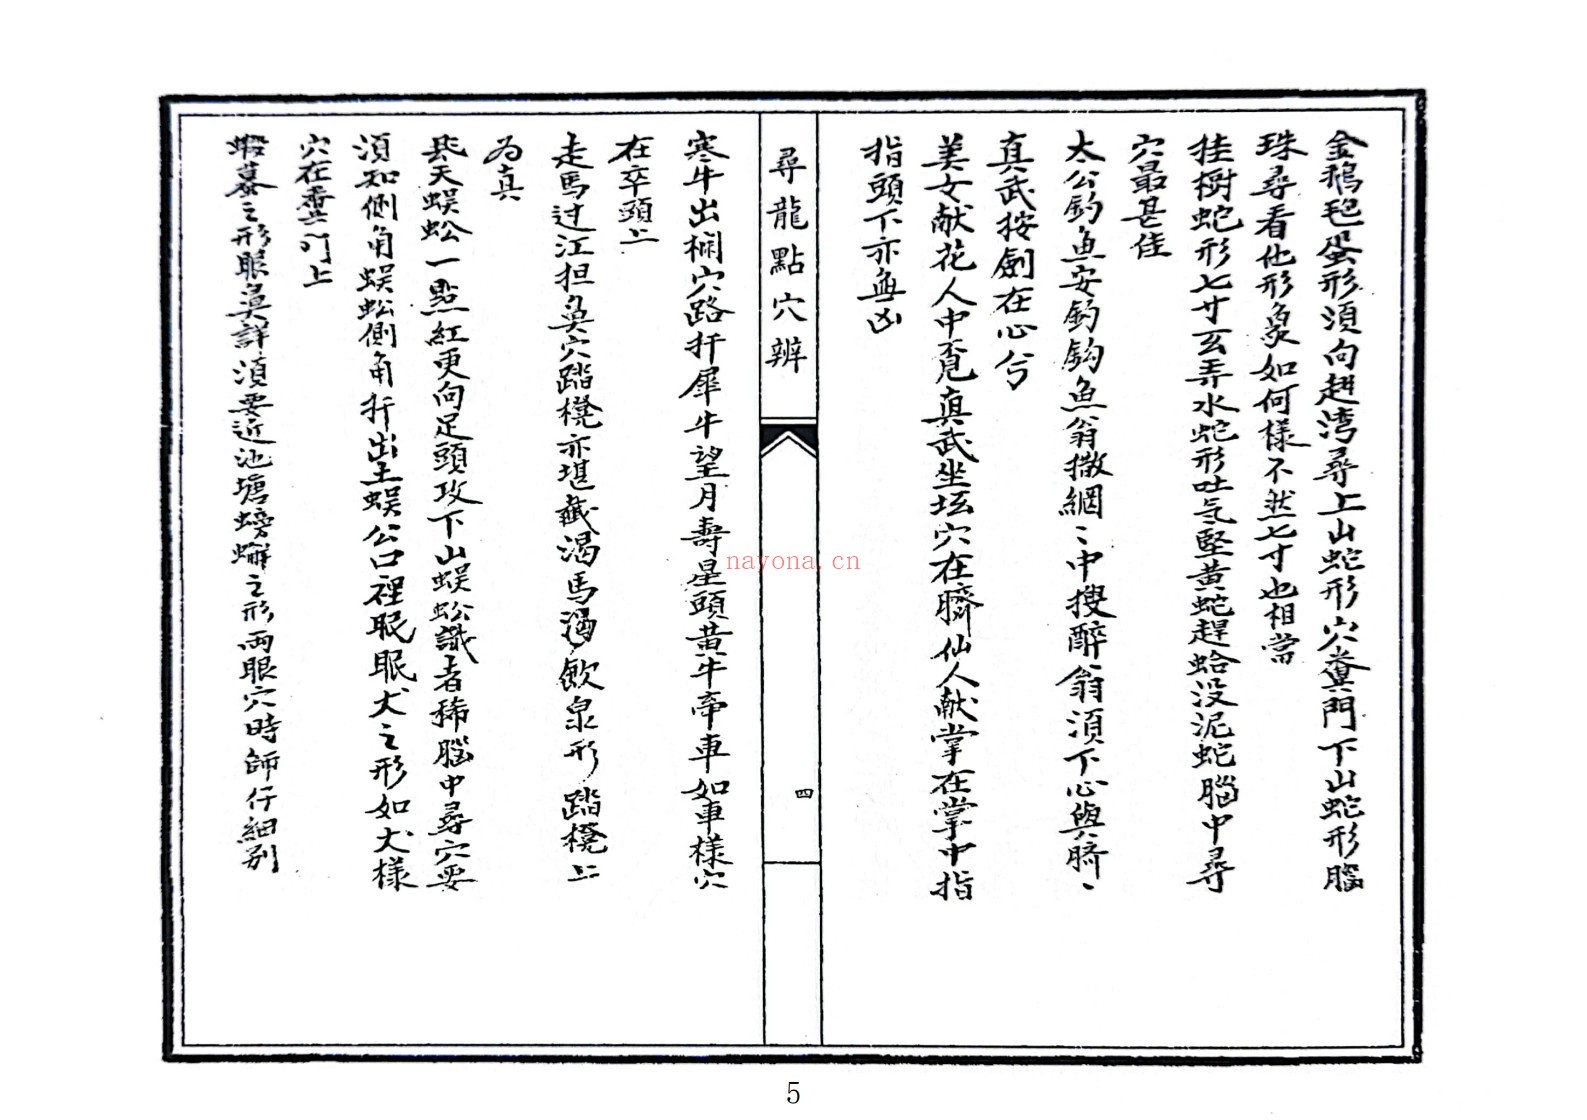 金鵝䓟蛋形須向赶湾尋上山蛇形穴糞門下山蛇形腦
珠尋看他形象如何樣不然七寸也相當
挂樹蛇形七寸玄弄水蛇形吐气堅黄蛇趕蛤没泥蛇腦中尋
穴最甚佳
太公釣魚安釣鈎魚翁撒網〻中搜醉翁須下心與臍〻
真武按劍在心兮
美女献花人中覓真武坐坛穴在臍仙人献掌在掌中指
指頭下亦無凶
尋龍點穴辨
四
寒牛出欄穴路扦犀牛望月壽星頭黄牛牵車如車樣穴
在卒頭上
走馬过江担奠穴踏櫈亦堪藏渴馬渴飲泉形踏櫈上
為真
天蜈蚣一點紅更向足頭攻下山蜈蚣識者稀腦中尋穴要
須知側角蜈蚣側角扦出土蜈公口裡眠眠犬之形如犬樣
穴在糞门上
蝦蟇之形眼奠詳須要近池塘螃蠏之形両眼穴時師仔細别
nayona.cn
5